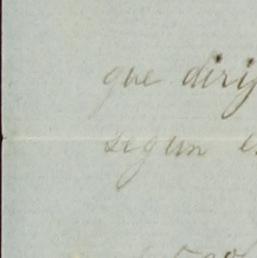 que dirij
segun e